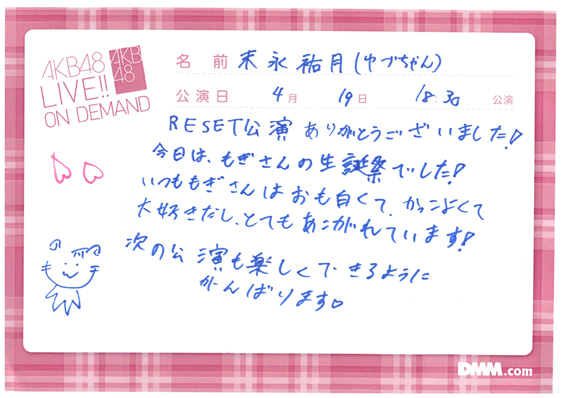 AKB48
LIVE!!
ON DEMAND
AKB
48
名 前 末永祐月(ゆづちゃん)
公演日 4月 19日 18:30 公演
RESET公演 ありがとうございました!
今日は、もぎさんの生誕祭でした!
いつももぎさんはおも白くて、かっこよくて
大好きだし、とてもあこがれています!
次の公演も楽しくできるように
がんばります♡
DMM.com